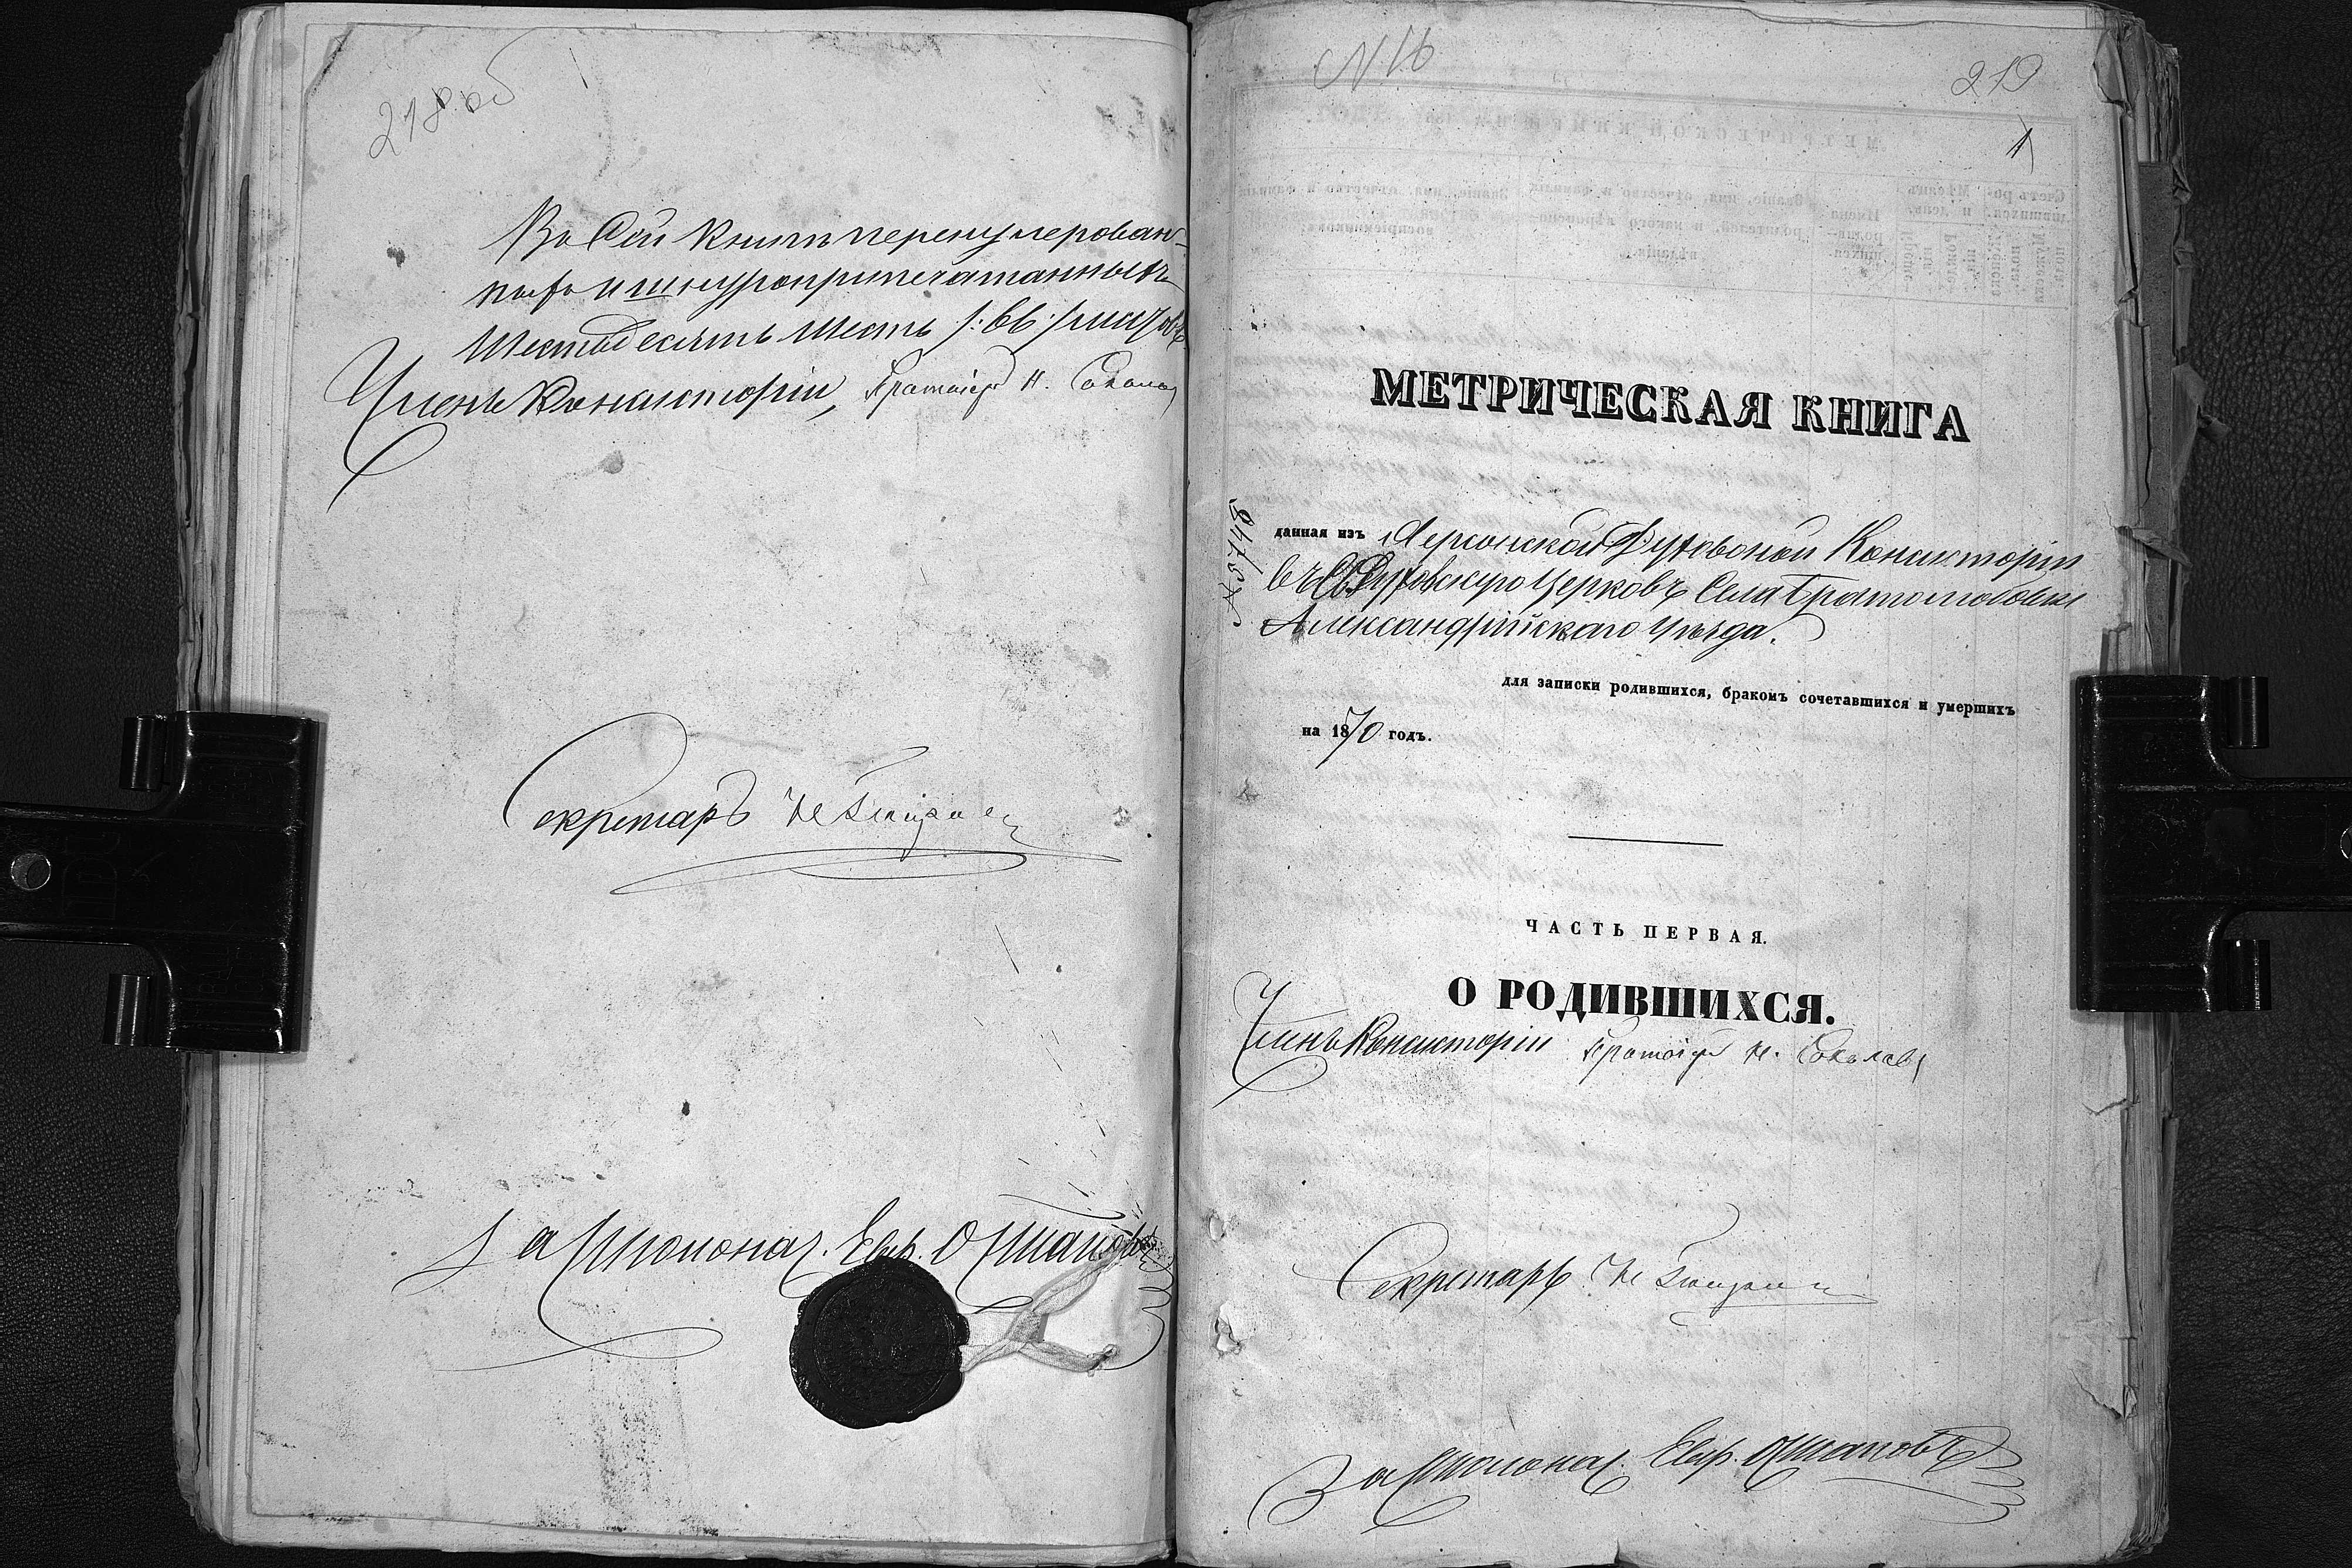 218 об
Въ Сей Книгѣ перенумерован-
ныхъ и шнуроприпечатанныхъ
Шестьдесятъ Шесть /:66:/ листовъ
Членъ Консисторіи, Протоіерей Н. Соколов
Секретарь
За Столонач. Евф. Осташовъ
N. 16
219
1
МЕТРИЧЕСКАЯ КНИГА
№ 5748
данная изъ Херсонской Духовной Консисторіи
въ Св. Духовскую Церковь Села Братолюбовки
Александрійскаго Уѣзда.
для записки родившихся, бракомъ сочетавшихся и умершихъ
на 1870 годъ.
ЧАСТЬ ПЕРВАЯ.
О РОДИВШИХСЯ.
Членъ Консисторіи Протоіерей Н. Соколовъ
Секретарь
За Столонач. Евф.